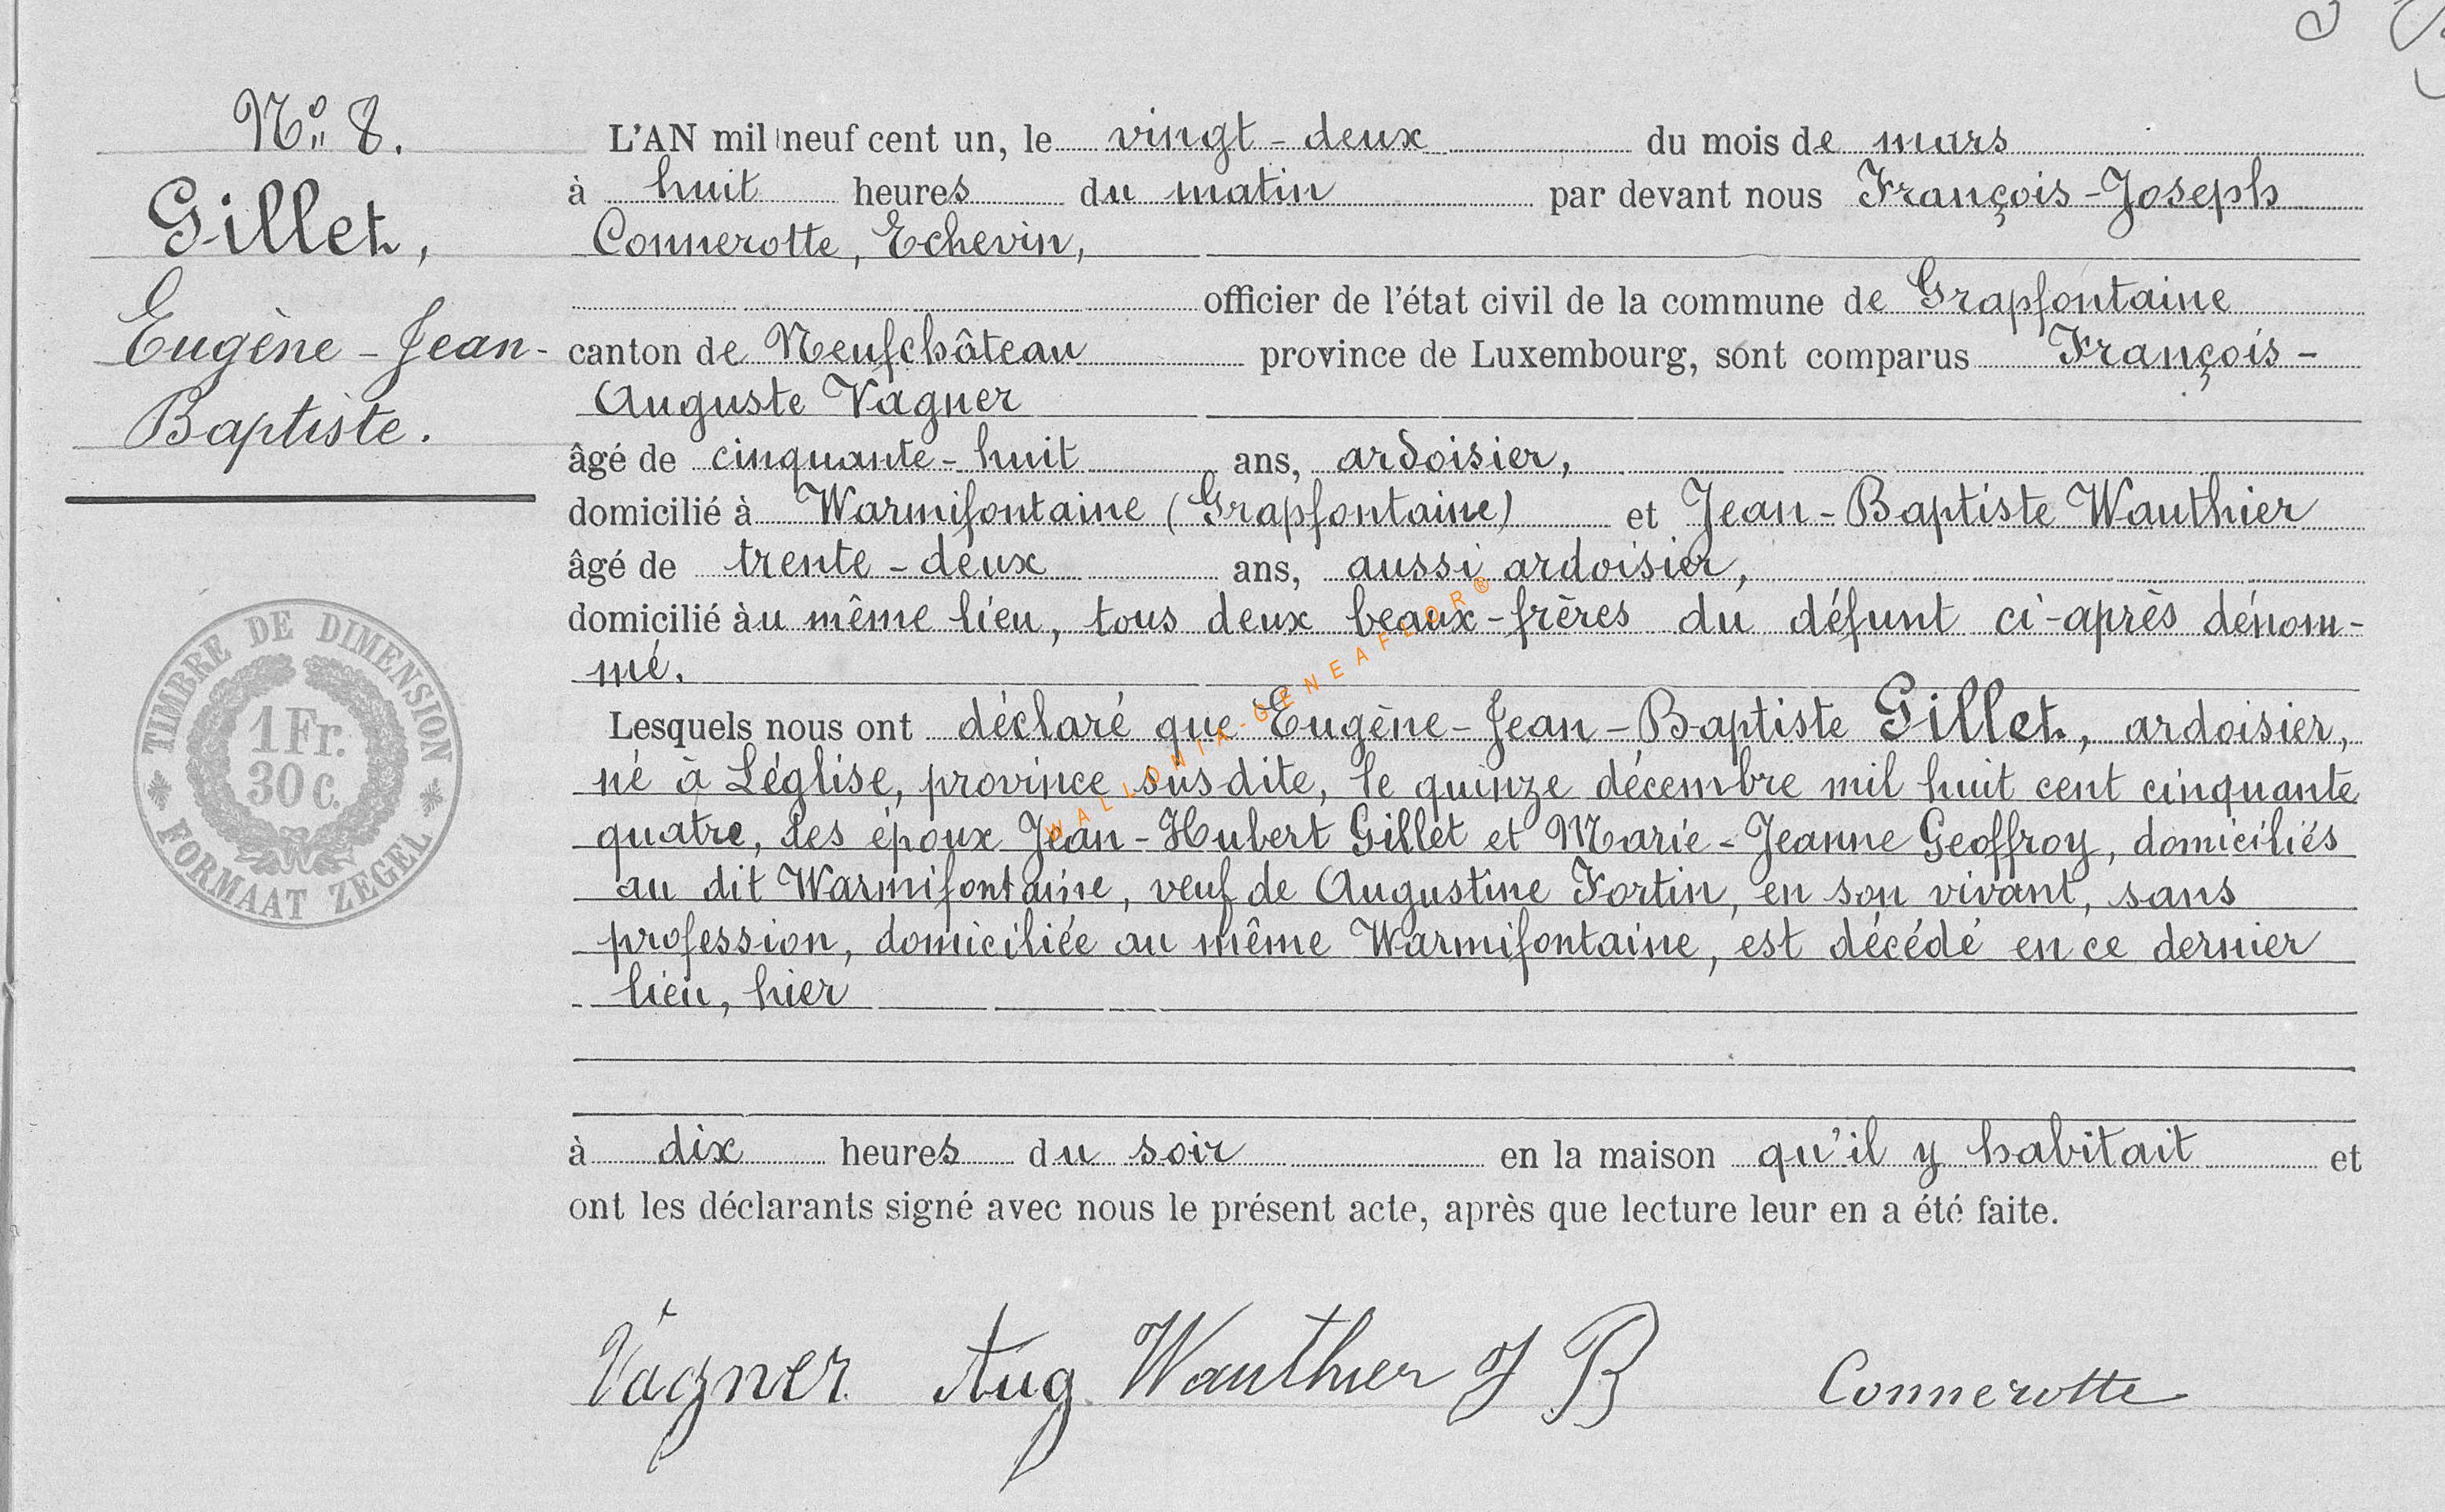 Nº 8.
Gillet,
Eugène-Jean-
Baptiste.
TIMBRE DE DIMENSION
1 Fr.
30 c.
FORMAAT ZEGEL
L'AN mil neuf cent un, le vingt-deux du mois de mars
à huit heures du matin par devant nous François-Joseph
Connerotte, Echevin,
officier de l'état civil de la commune de Grapfontaine
canton de Neufchâteau province de Luxembourg, sont comparus François-
Auguste Vagner
âgé de cinquante-huit ans, ardoisier,
domicilié à Warmifontaine (Grapfontaine) et Jean-Baptiste Wauthier
âgé de trente-deux ans, aussi ardoisier,
domicilié àu même lieu, tous deux beaux-frères du défunt ci-après dénom-
mé.
Lesquels nous ont déclaré que Eugène-Jean-Baptiste Gillet, ardoisier,
né à Léglise, province susdite, le quinze décembre mil huit cent cinquante
quatre, des époux Jean-Hubert Gillet et Marie-Jeanne Geoffroy, domiciliés
au dit Warmifontaine, veuf de Augustine Fortin, en son vivant, sans
profession, domiciliée au même Warmifontaine, est décédé en ce dernier
lieu, hier
à dix heures du soir en la maison qu'il y habitait et
ont les déclarants signé avec nous le présent acte, après que lecture leur en a été faite.
Vagner Aug Wauthier J B Connerotte
WALLONIA-GENEAFLOR®